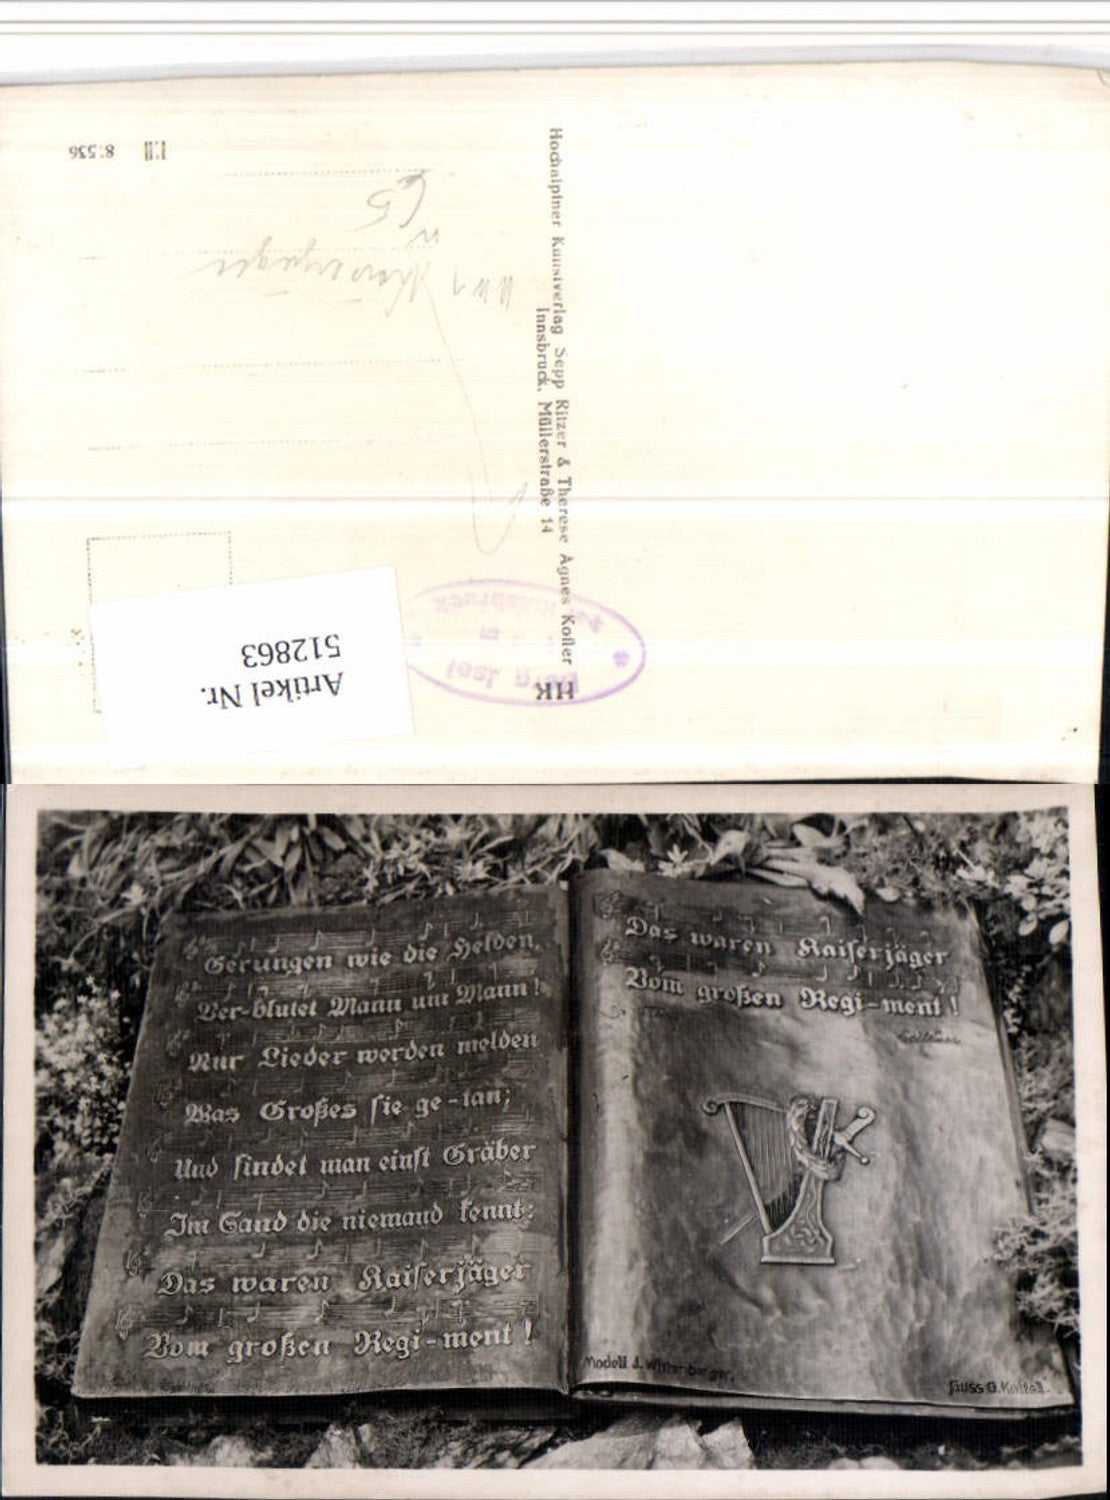 8:536
Hochalpiner Kunstverlag Sepp Ritzer & Therese Agnes Koller
Innsbruck, Müllerstraße 14
HK
Berg Isel
Innsbruck
Artikel Nr.
512863
Gerungen wie die Helden,
Ver-blutet Mann um Mann!
Nur Lieder werden melden
Was Großes sie ge-tan;
Und findet man einst Gräber
Im Sand die niemand kennt:
Das waren Kaiserjäger
Vom großen Regi-ment!
Das waren Kaiserjäger
Vom großen Regi-ment!
Modell J.
Guss O.